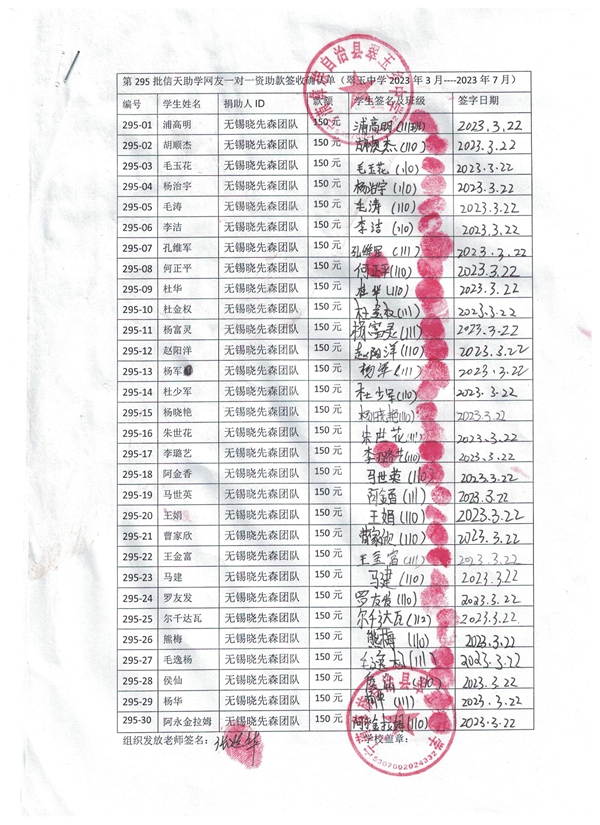 第 295 批信天助学网友一对一资助款签收确认单（翠玉中学 2023 年 3 月----2023 年 7 月）
编号 学生姓名 捐助人 ID 款额 学生签名及班级 签字日期
295-01 浦高明 无锡晓先森团队 150 元 浦高明(111班) 2023.3.22
295-02 胡顺杰 无锡晓先森团队 150 元 胡顺杰(110) 2023.3.22
295-03 毛玉花 无锡晓先森团队 150 元 毛玉花(110) 2023.3.22
295-04 杨治宇 无锡晓先森团队 150 元 杨治宇(110) 2023.3.22
295-05 毛涛 无锡晓先森团队 150 元 毛涛(110) 2023.3.22
295-06 李洁 无锡晓先森团队 150 元 李洁(110) 2023.3.22
295-07 孔维军 无锡晓先森团队 150 元 孔维军(111) 2023.3.22
295-08 何正平 无锡晓先森团队 150 元 何正平(110) 2023.3.22
295-09 杜华 无锡晓先森团队 150 元 杜华(110) 2023.3.22
295-10 杜金权 无锡晓先森团队 150 元 杜金权(111) 2023.3.22
295-11 杨富灵 无锡晓先森团队 150 元 杨富灵(111) 2023.3.22
295-12 赵阳洋 无锡晓先森团队 150 元 赵阳洋(110) 2023.3.22
295-13 杨军 无锡晓先森团队 150 元 杨军(111) 2023.3.22
295-14 杜少军 无锡晓先森团队 150 元 杜少军(110) 2023.3.22
295-15 杨晓艳 无锡晓先森团队 150 元 杨晓艳(110) 2023.3.22
295-16 朱世花 无锡晓先森团队 150 元 朱世花(111) 2023.3.22
295-17 李璐艺 无锡晓先森团队 150 元 李璐艺(110) 2023.3.22
295-18 阿金香 无锡晓先森团队 150 元 马世英(110) 2023.3.22
295-19 马世英 无锡晓先森团队 150 元 阿金香(111) 2023.3.22
295-20 王娟 无锡晓先森团队 150 元 王娟(110) 2023.3.22
295-21 曹家欣 无锡晓先森团队 150 元 曹家欣(110) 2023.3.22
295-22 王金富 无锡晓先森团队 150 元 王金富(111) 2023.3.22
295-23 马建 无锡晓先森团队 150 元 马建(110) 2023.3.22
295-24 罗友发 无锡晓先森团队 150 元 罗友发(110) 2023.3.22
295-25 尔千达瓦 无锡晓先森团队 150 元 尔千达瓦(112) 2023.3.22
295-26 熊梅 无锡晓先森团队 150 元 熊梅(110) 2023.3.22
295-27 毛逸杨 无锡晓先森团队 150 元 (111) 2023.3.22
295-28 侯仙 无锡晓先森团队 150 元 (110) 2023.3.22
295-29 杨华 无锡晓先森团队 150 元 (111) 2023.3.22
295-30 阿永金拉姆 无锡晓先森团队 150 元 阿永金拉姆(110) 2023.3.22
组织发放老师签名： 学校盖章：
5307002024332